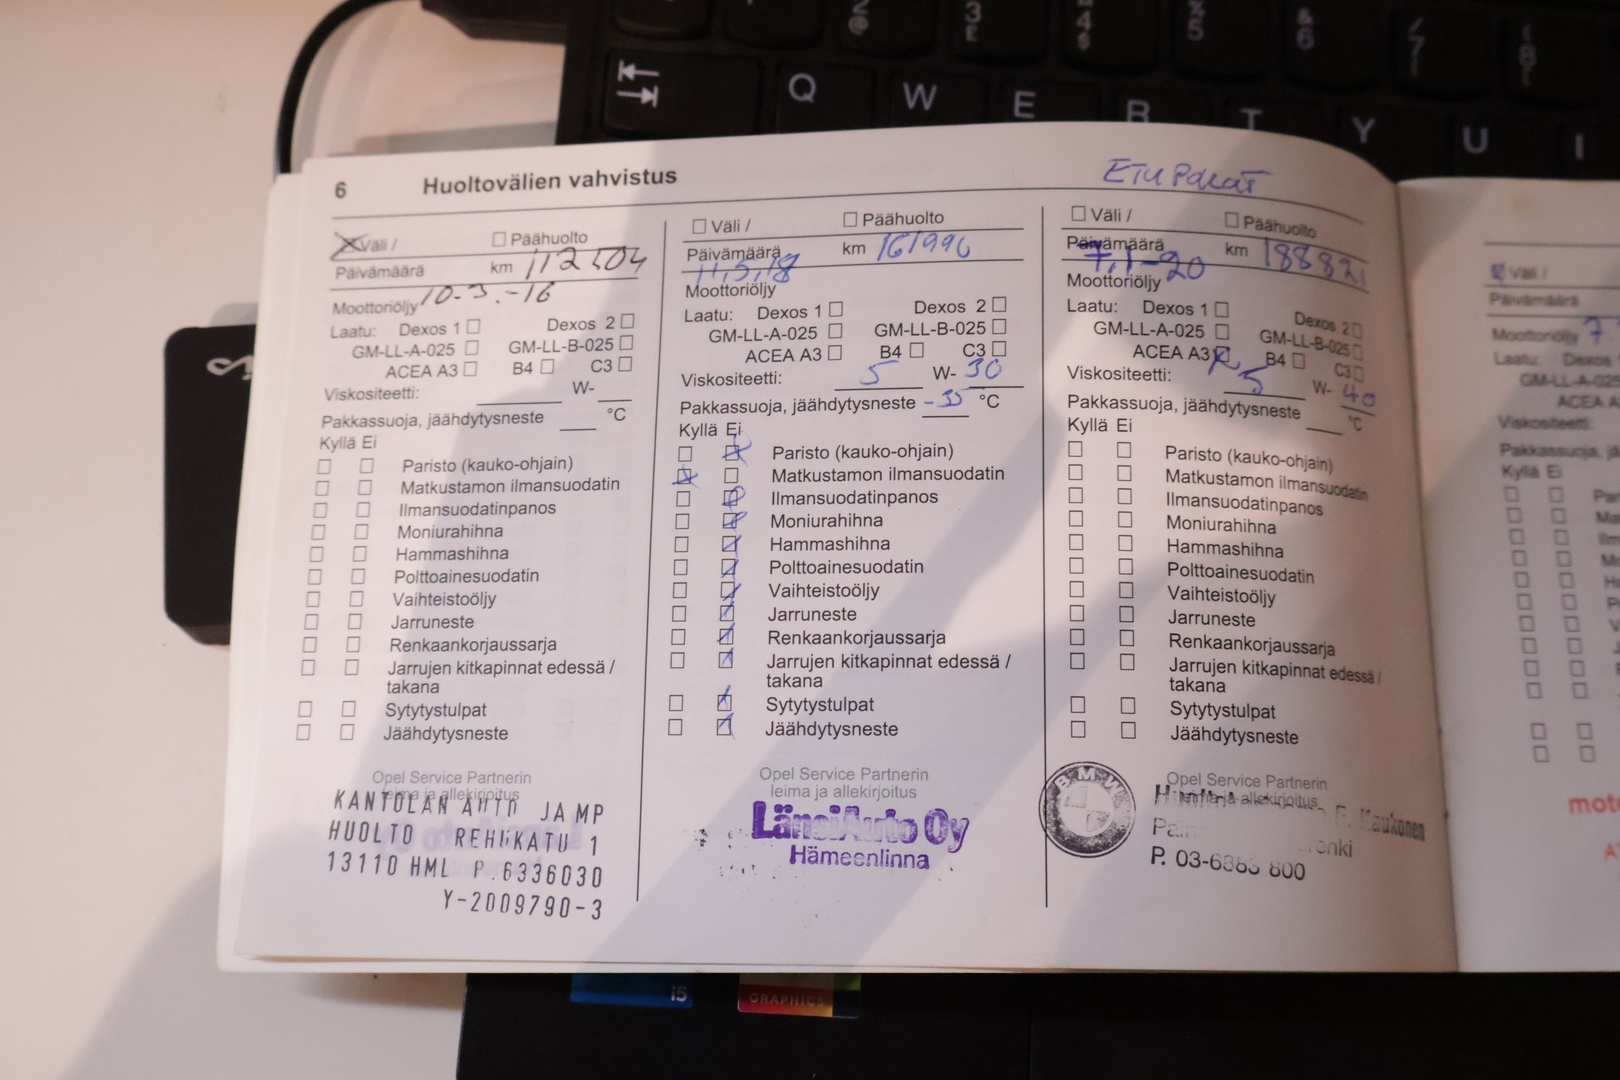 Q W E R T Y U I
6 Huoltovälien vahvistus
ETU PALAT
Väli / Päähuolto
Päivämäärä km 112504
Moottoriöljy 10-3.-16
Laatu: Dexos 1 Dexos 2
GM-LL-A-025 GM-LL-B-025
ACEA A3 B4 C3
Viskositeetti: W-
Pakkassuoja, jäähdytysneste °C
Kyllä Ei
Paristo (kauko-ohjain)
Matkustamon ilmansuodatin
Ilmansuodatinpanos
Moniurahihna
Hammashihna
Polttoainesuodatin
Vaihteistoöljy
Jarruneste
Renkaankorjaussarja
Jarrujen kitkapinnat edessä /
takana
Sytytystulpat
Jäähdytysneste
Opel Service Partnerin
leima ja allekirjoitus
KANTOLAN AUTO JA MP
HUOLTO REHUKATU 1
13110 HML P 6336030
Y-2009790-3
Väli / Päähuolto
Päivämäärä km 161996
11,5,18
Moottoriöljy
Laatu: Dexos 1 Dexos 2
GM-LL-A-025 GM-LL-B-025
ACEA A3 B4 C3
Viskositeetti: 5 W- 30
Pakkassuoja, jäähdytysneste -35 °C
Kyllä Ei
Paristo (kauko-ohjain)
Matkustamon ilmansuodatin
Ilmansuodatinpanos
Moniurahihna
Hammashihna
Polttoainesuodatin
Vaihteistoöljy
Jarruneste
Renkaankorjaussarja
Jarrujen kitkapinnat edessä /
takana
Sytytystulpat
Jäähdytysneste
Opel Service Partnerin
leima ja allekirjoitus
LänsiAuto Oy
Hämeenlinna
Väli / Päähuolto
Päivämäärä km 188821
7,1-20
Moottoriöljy
Laatu: Dexos 1 Dexos 2
GM-LL-A-025 GM-LL-B-025
ACEA A3 B4 C3
Viskositeetti: 5 W- 40
Pakkassuoja, jäähdytysneste °C
Kyllä Ei
Paristo (kauko-ohjain)
Matkustamon ilmansuodatin
Ilmansuodatinpanos
Moniurahihna
Hammashihna
Polttoainesuodatin
Vaihteistoöljy
Jarruneste
Renkaankorjaussarja
Jarrujen kitkapinnat edessä /
takana
Sytytystulpat
Jäähdytysneste
Opel Service Partnerin
leima ja allekirjoitus
BMW
Kaukonen
P. 03-6383 800
Väli /
Päivämäärä
Moottoriöljy 7
Laatu: Dexos
GM-LL-A-025
ACEA
Viskositeetti:
Pakkassuoja,
Kyllä Ei
i5
GRAPHICS